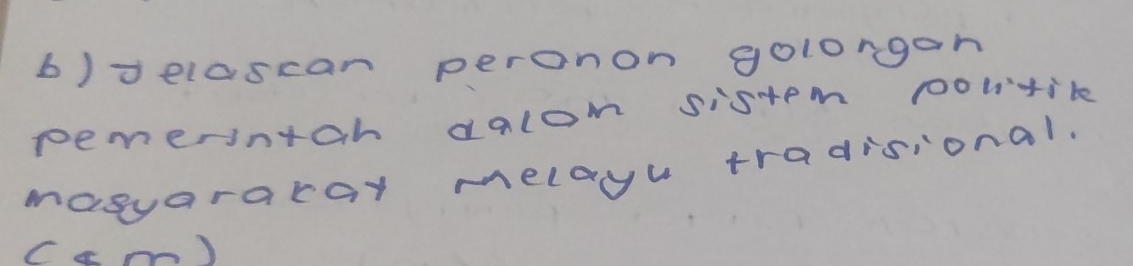 b) Jelaskan peranan golongan
pemerintah dalam sistem politik
masyarakat melayu tradisional.